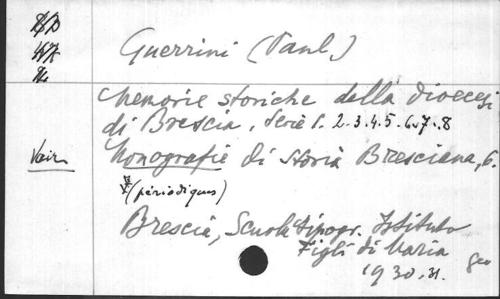 Guerrini (Paul.)
Memorie storiche della diocesi
di Brescia, Serie 1. 2.3.4.5.6.7.8
Voir
Monografie di storia Bresciana, 6.
(périodiques)
Brescia, Scuola tipogr. Istituto
Figli di Maria
1930.31.